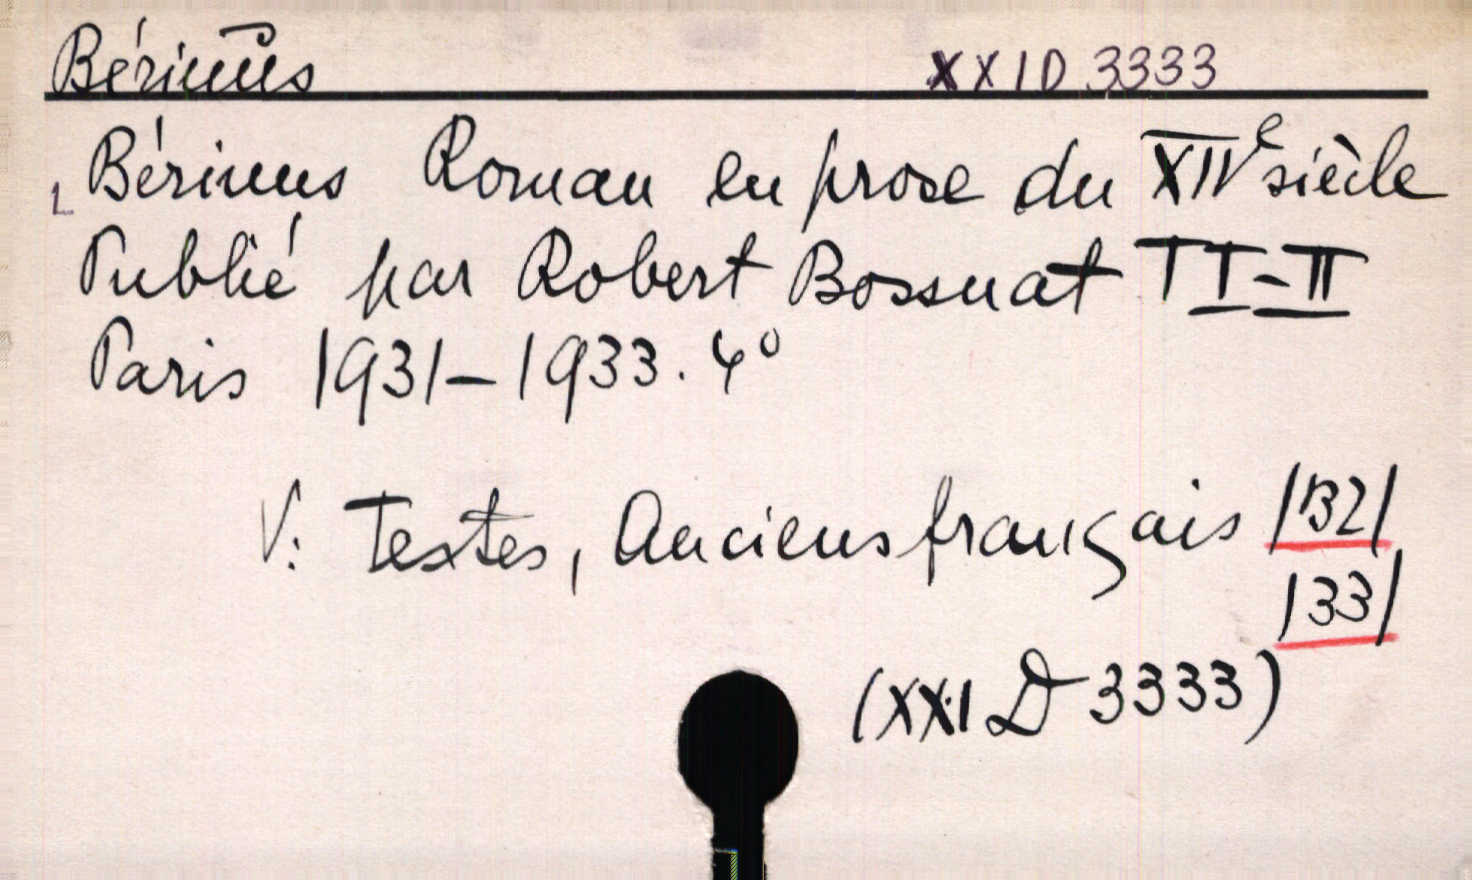 Bérinus XXID 3333
1 Bérinus Roman en prose du XIVe siècle
Publié par Robert Bossuat T I-II
Paris 1931-1933. 4°
V: Textes, Anciens français |132|
|33|
(XXI D 3333)